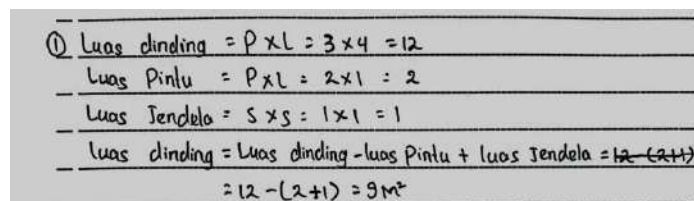 ① Luas dinding = P x L = 3 x 4 = 12
Luas Pintu = P x L = 2 x 1 = 2
Luas Jendela = S x S = 1 x 1 = 1
luas dinding = Luas dinding - luas Pintu + luas Jendela = 12 - (2+1)
= 12 - (2+1) = 9 m²